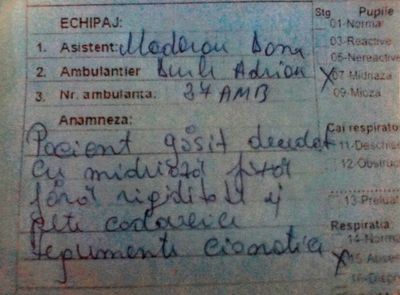 ECHIPAJ:
1. Asistent: Dona
2. Ambulantier Adrian
3. Nr. ambulanta: 34 AMB
Anamneza:
Pacient găsit decedat
cu midriază fixă
fără rigiditate și
pete cadaverice
tegumente cianotice
Stg Pupile
01-Norma
03-Reactive
05-Nereactive
X 07-Midriaza
09-Mioza
Cai respirato
11-Deschise
12-Obstruc
13-Preluat
Respiratia
14-Norma
X 15-Abse
16-Dispn